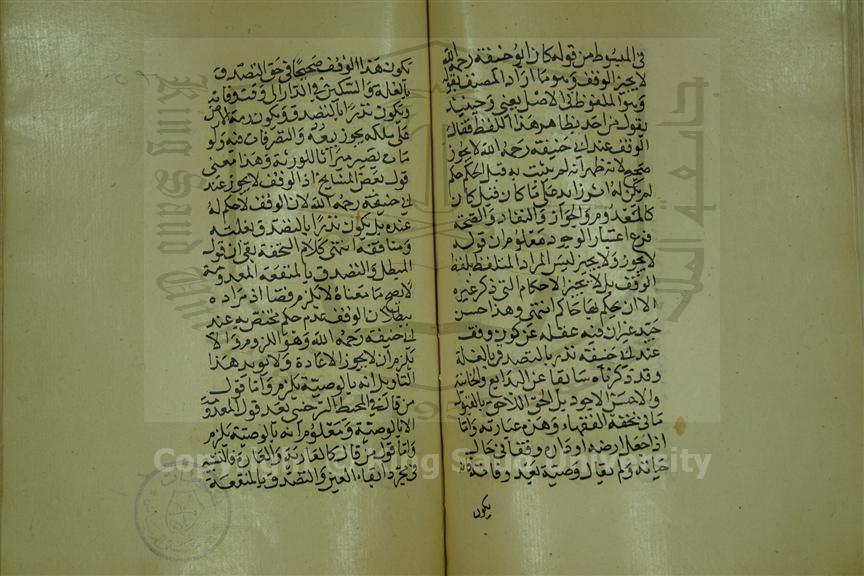 في المبسوط من قوله كان أبو حنيفة رحمه الله
لا يجيز الوقف ومما أراد المصنف بقوله
وهو الملفوظ في الأصل يعني وحينئذ
يقول من أخذ بظاهر هذا اللفظ فقال
الوقف عند أبي حنيفة رحمه الله لا يجوز
صحيح لأنه ظهر أنه لم يثبت به قبل الحكم حكم
لم يكن له اثر زايد على ما كان قبل كان
كالمعدوم والجواز والنفاذ والصحة
فرع اعتبار الوجود معلوم ان قوله
لا يجوز ولا يجيز ليس المراد المتلفظ بلفظ
الوقف بل لا يجيز الأحكام التي ذكر غيره
الا ان يحكم بها حاكم انتهى وهذا حسن
جيد غير ان فيه غفله عن كون وقف
عند أبي حنيفة نذر بالتصدق بالغلة
وقد ذكرناه سابقا عن البدايع والخانية
والاحسن الاجود بل الحق اللاحق بالقبول
ما في تحفة الفقهاء وهذه عبارته وأما
اذا جعل ارضه او داره وقفا في حال
حياته ولم يقل وصية بعد وفاته فانه
يكون
يكون هذا الوقف صحيحا في حق التصدق
بالغلة والسكنى في الدار الى وقت وفاته
ويكون نذرا بالتصدق ويكون رقبة الارض
على ملكه يجوز بيعه والتصرفات فيه ولو
مات يصير ميراثا للورثة وهذا معنى
قول بعض المشايخ اذ الوقف لا يجوز عند
أبي حنيفة رحمه الله لان الوقف لا حكم له
عنده بل يكون نذرا بالتصدق بغلته
ومنافعه انتهى كلام التحفة بقي ان قول
المبطل والتصدق بالمنفعة المعدومة
لا يصح ما معناه لا يلزم فصا اذ مراده
ببطلان الوقف عدم حكم مختص به عند
أبي حنيفة رحمه الله وهو اللزوم والا
يلزم ان لا يجوز الاعادة ولا يؤيد هذا
التاويل انه بالوصية يلزم واما قول
من قال في المحيط السرخسي بعد قول المعدوم
الا بالوصية ومعلوم انه بالوصية يلزم
واما قول من قال كالعارية
في مجرد ابقاء العين والتصدق بالمنفعة
Copyright © King Saud University
King Saud University
جامعة الملك سعود